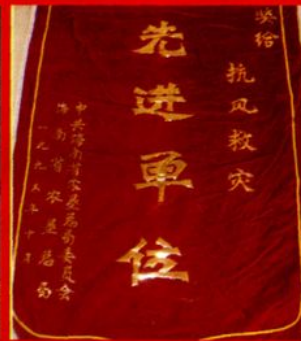 奖给
抗风救灾
先进单位
中共海南省农垦总局委员会
海南省农垦总局
一九九五年十月